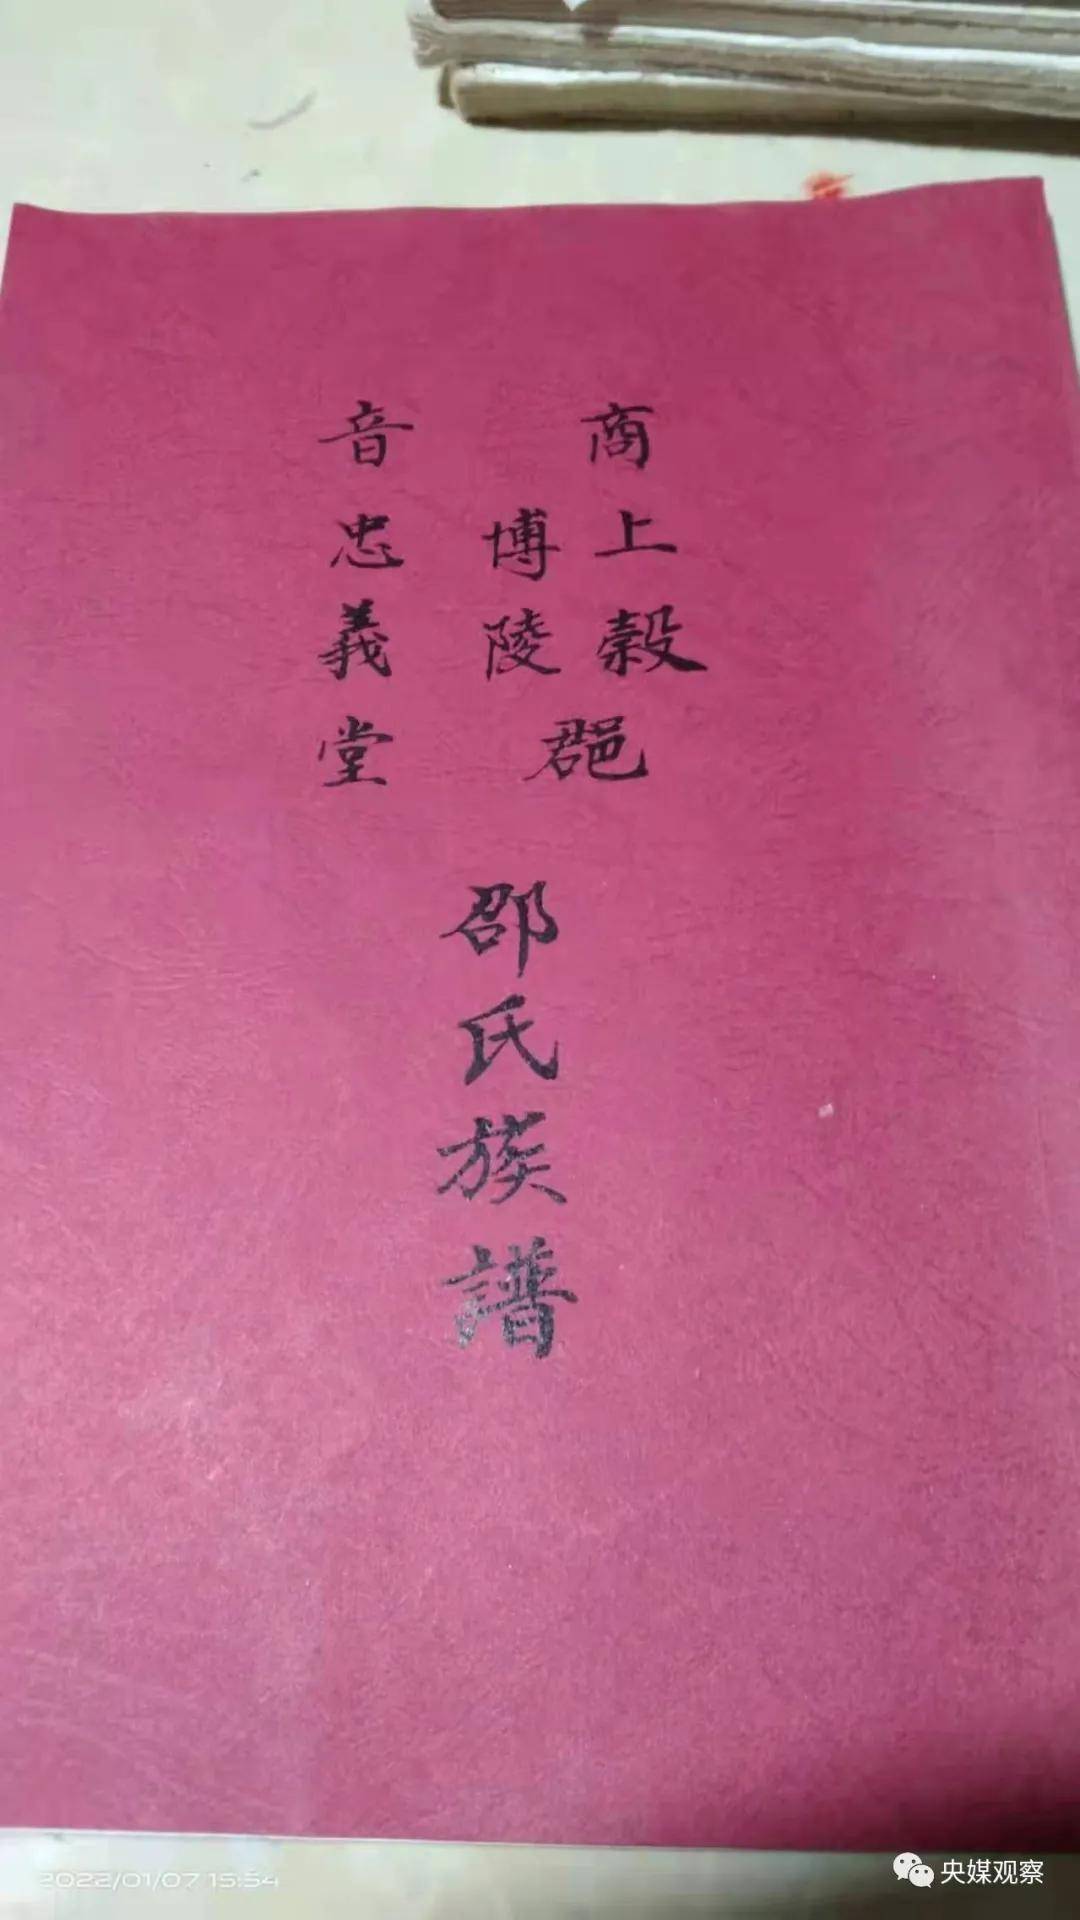 商音
上榖
博陵
郡
忠義堂
邵氏族譜
2022/01/07 15:54
央媒观察